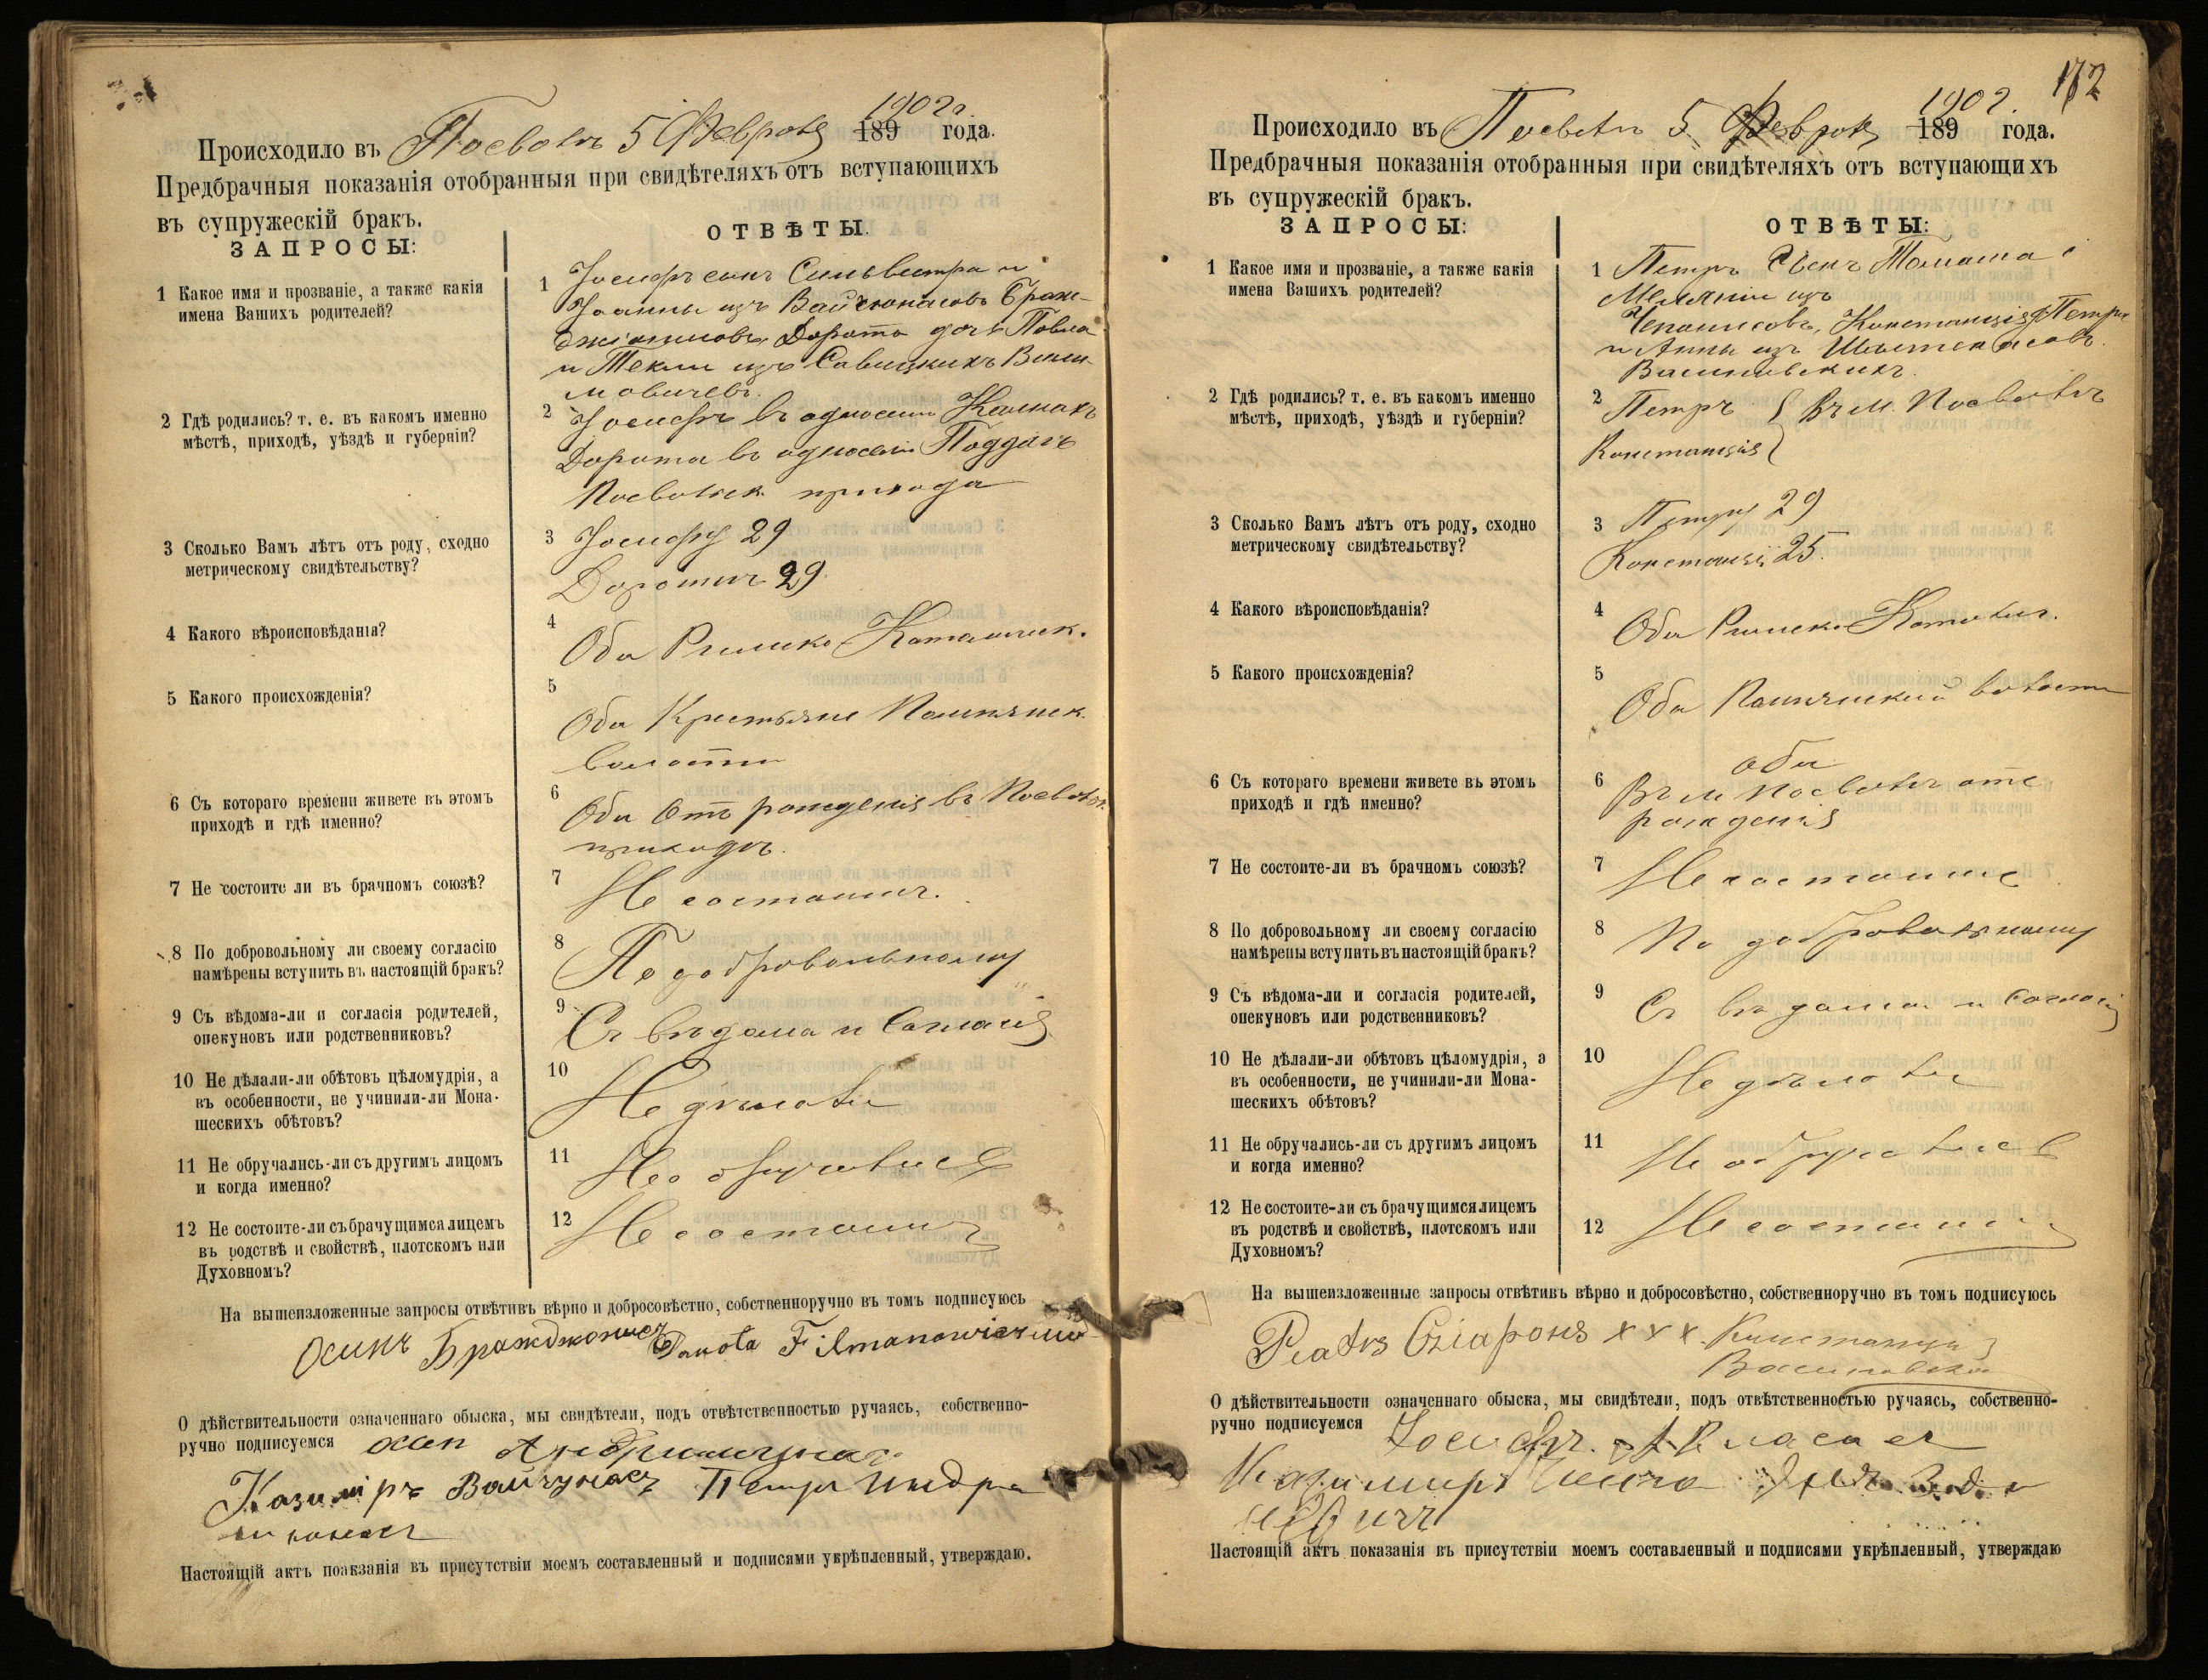 1902 г.
Происходило въ Посволѣ 5 Февраля 189 года.
Предбрачныя показанія отобранныя при свидѣтеляхъ отъ вступающихъ
въ супружескій бракъ.
ЗАПРОСЫ:
ОТВѢТЫ.
1 Какое имя и прозваніе, а также какія
имена Вашихъ родителей?
1 Іосифъ сынъ Сильвестра и
Іоанны изъ Вайчюнасовъ Браж-
джіонисовъ, Дорота дочь Павла
и Текли изъ Савицкихъ
мовичевъ.
2 Гдѣ родились? т. е. въ какомъ именно
мѣстѣ, приходѣ, уѣздѣ и губерніи?
2 Іосифъ въ околодкѣ
Дорота въ
Посвольск. прихода
3 Сколько Вамъ лѣтъ отъ роду, сходно
метрическому свидѣтельству?
3 Іосифу 29
Доротѣ 29
4 Какого вѣроисповѣданія?
4 Оба Римско Католическ.
5 Какого происхожденія?
5 Оба Крестьяне Помпянск.
волости
6 Съ котораго времени живете въ этомъ
приходѣ и гдѣ именно?
6 Оба отъ рожденія въ Посвол.
приходѣ.
7 Не состоите ли въ брачномъ союзѣ?
7 Не состоимъ.
8 По добровольному ли своему согласію
намѣрены вступить въ настоящій бракъ?
8 По добровольному
9 Съ вѣдома-ли и согласія родителей,
опекуновъ или родственниковъ?
9 Съ вѣдома и согласія
10 Не дѣлали-ли обѣтовъ цѣломудрія, а
въ особенности, не учинили-ли Мона-
шескихъ обѣтовъ?
10 Не дѣлали
11 Не обручались-ли съ другимъ лицомъ
и когда именно?
11 Не обручались
12 Не состоите-ли съ брачущимся лицемъ
въ родствѣ и свойствѣ, плотскомъ или
Духовномъ?
12 Не состоимъ
На вышеизложенные запросы отвѣтивъ вѣрно и добросовѣстно, собственноручно въ томъ подписуюсь
Осипъ Бражджюнисъ Darota Filmanowiczuw
О дѣйствительности означеннаго обыска, мы свидѣтели, подъ отвѣтственностью ручаясь, собственно-
ручно подписуемся
Казиміръ Вайчунасъ Петръ Индри
юнасъ
Настоящій актъ поакзанія въ присутствіи моемъ составленный и подписями укрѣпленный, утверждаю.
172
1902.
Происходило въ Посволѣ 5 Февраля 189 года.
Предбрачныя показанія отобранныя при свидѣтеляхъ отъ вступающихъ
въ супружескій бракъ.
ЗАПРОСЫ:
ОТВѢТЫ:
1 Какое имя и прозваніе, а также какія
имена Вашихъ родителей?
1 Петръ сынъ Томаша и
Меланіи изъ
Констанція Петра
и Анны изъ
2 Гдѣ родились? т. е. въ какомъ именно
мѣстѣ, приходѣ, уѣздѣ и губерніи?
2 Петръ въ м. Посволѣ
Констанція
3 Сколько Вамъ лѣтъ отъ роду, сходно
метрическому свидѣтельству?
3 Петру 29
Констанціи 25.
4 Какого вѣроисповѣданія?
4 Оба Римско Католич.
5 Какого происхожденія?
5 Оба Помпянской волости
6 Съ котораго времени живете въ этомъ
приходѣ и гдѣ именно?
оба
6 Въ м Посволѣ отъ
рожденія
7 Не состоите-ли въ брачномъ союзѣ?
7 Не состоимъ
8 По добровольному ли своему согласію
намѣрены вступить въ настоящій бракъ?
8 По добровольному
9 Съ вѣдома-ли и согласія родителей,
опекуновъ или родственниковъ?
9 Съ вѣдома и согласія
10 Не дѣлали-ли обѣтовъ цѣломудрія, а
въ особенности, не учинили-ли Мона-
шескихъ обѣтовъ?
10 Не дѣлали
11 Не обручались-ли съ другимъ лицомъ
и когда именно?
11 Не обручались
12 Не состоите-ли съ брачущимся лицемъ
въ родствѣ и свойствѣ, плотскомъ или
Духовномъ?
12 Не состоимъ
На вышеизложенные запросы отвѣтивъ вѣрно и добросовѣстно, собственноручно въ томъ подписуюсь
x x x Констанція
О дѣйствительности означеннаго обыска, мы свидѣтели, подъ отвѣтственностью ручаясь, собственно-
ручно подписуемся Іосифъ
Казимиръ
Настоящій актъ показанія въ присутствіи моемъ составленный и подписями укрѣпленный, утверждаю